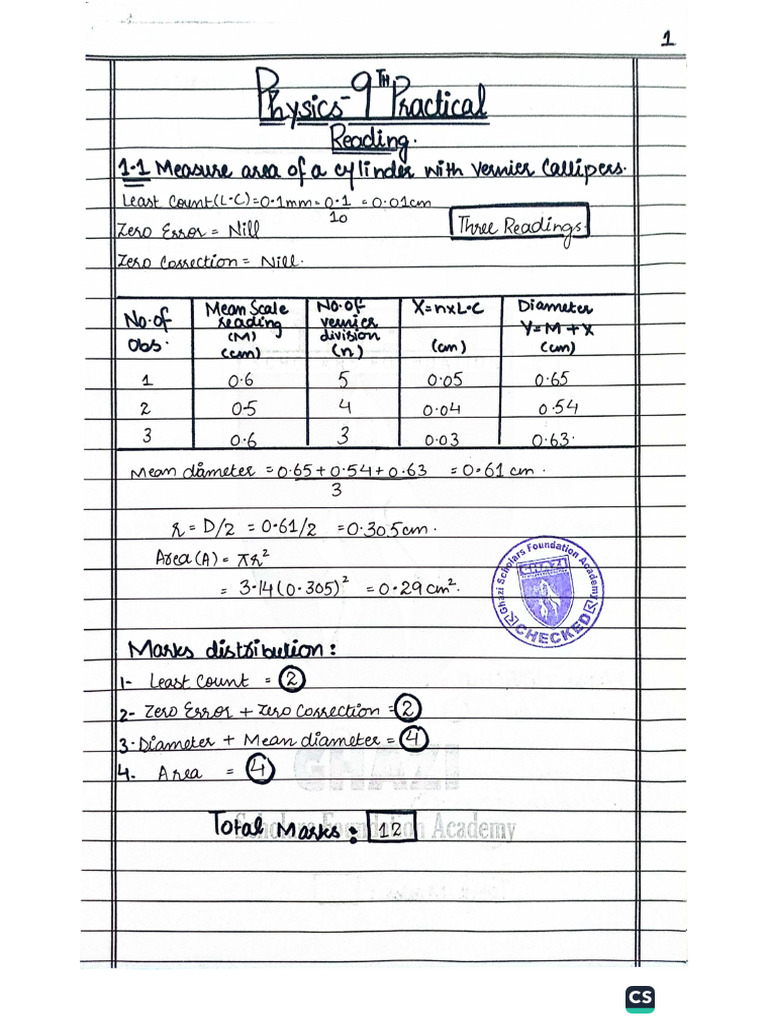 1
Physics-9TH Practical
Reading.
1.1 Measure area of a cylinder with vernier Callipers.
Least Count(L.C)=0.1mm=0.1/10=0.01cm
Zero Error = Nill
Three Readings.
Zero Correction = Nill.
No.of Obs. | Mean Scale reading (M) (cm) | No.of vernier division (n) | X=n×L.C (cm) | Diameter Y=M+X (cm)
1 | 0.6 | 5 | 0.05 | 0.65
2 | 0.5 | 4 | 0.04 | 0.54
3 | 0.6 | 3 | 0.03 | 0.63.
Mean diameter = 0.65+0.54+0.63/3 = 0.61 cm.
r = D/2 = 0.61/2 = 0.305cm.
Area(A) = πr²
= 3.14(0.305)² = 0.29cm².
Ghazi Scholars Foundation Academy
GHAZI
CHECKED
Marks distribution:
1- Least Count = 2
2- Zero Error + Zero Correction = 2
3. Diameter + Mean diameter = 4
4. Area = 4
GHAZI
Scholars Foundation Academy
Total Marks: 12
CS